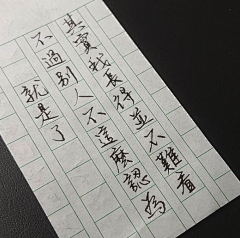 其實我長得並不難看
不過別人不這麼認為
就是了